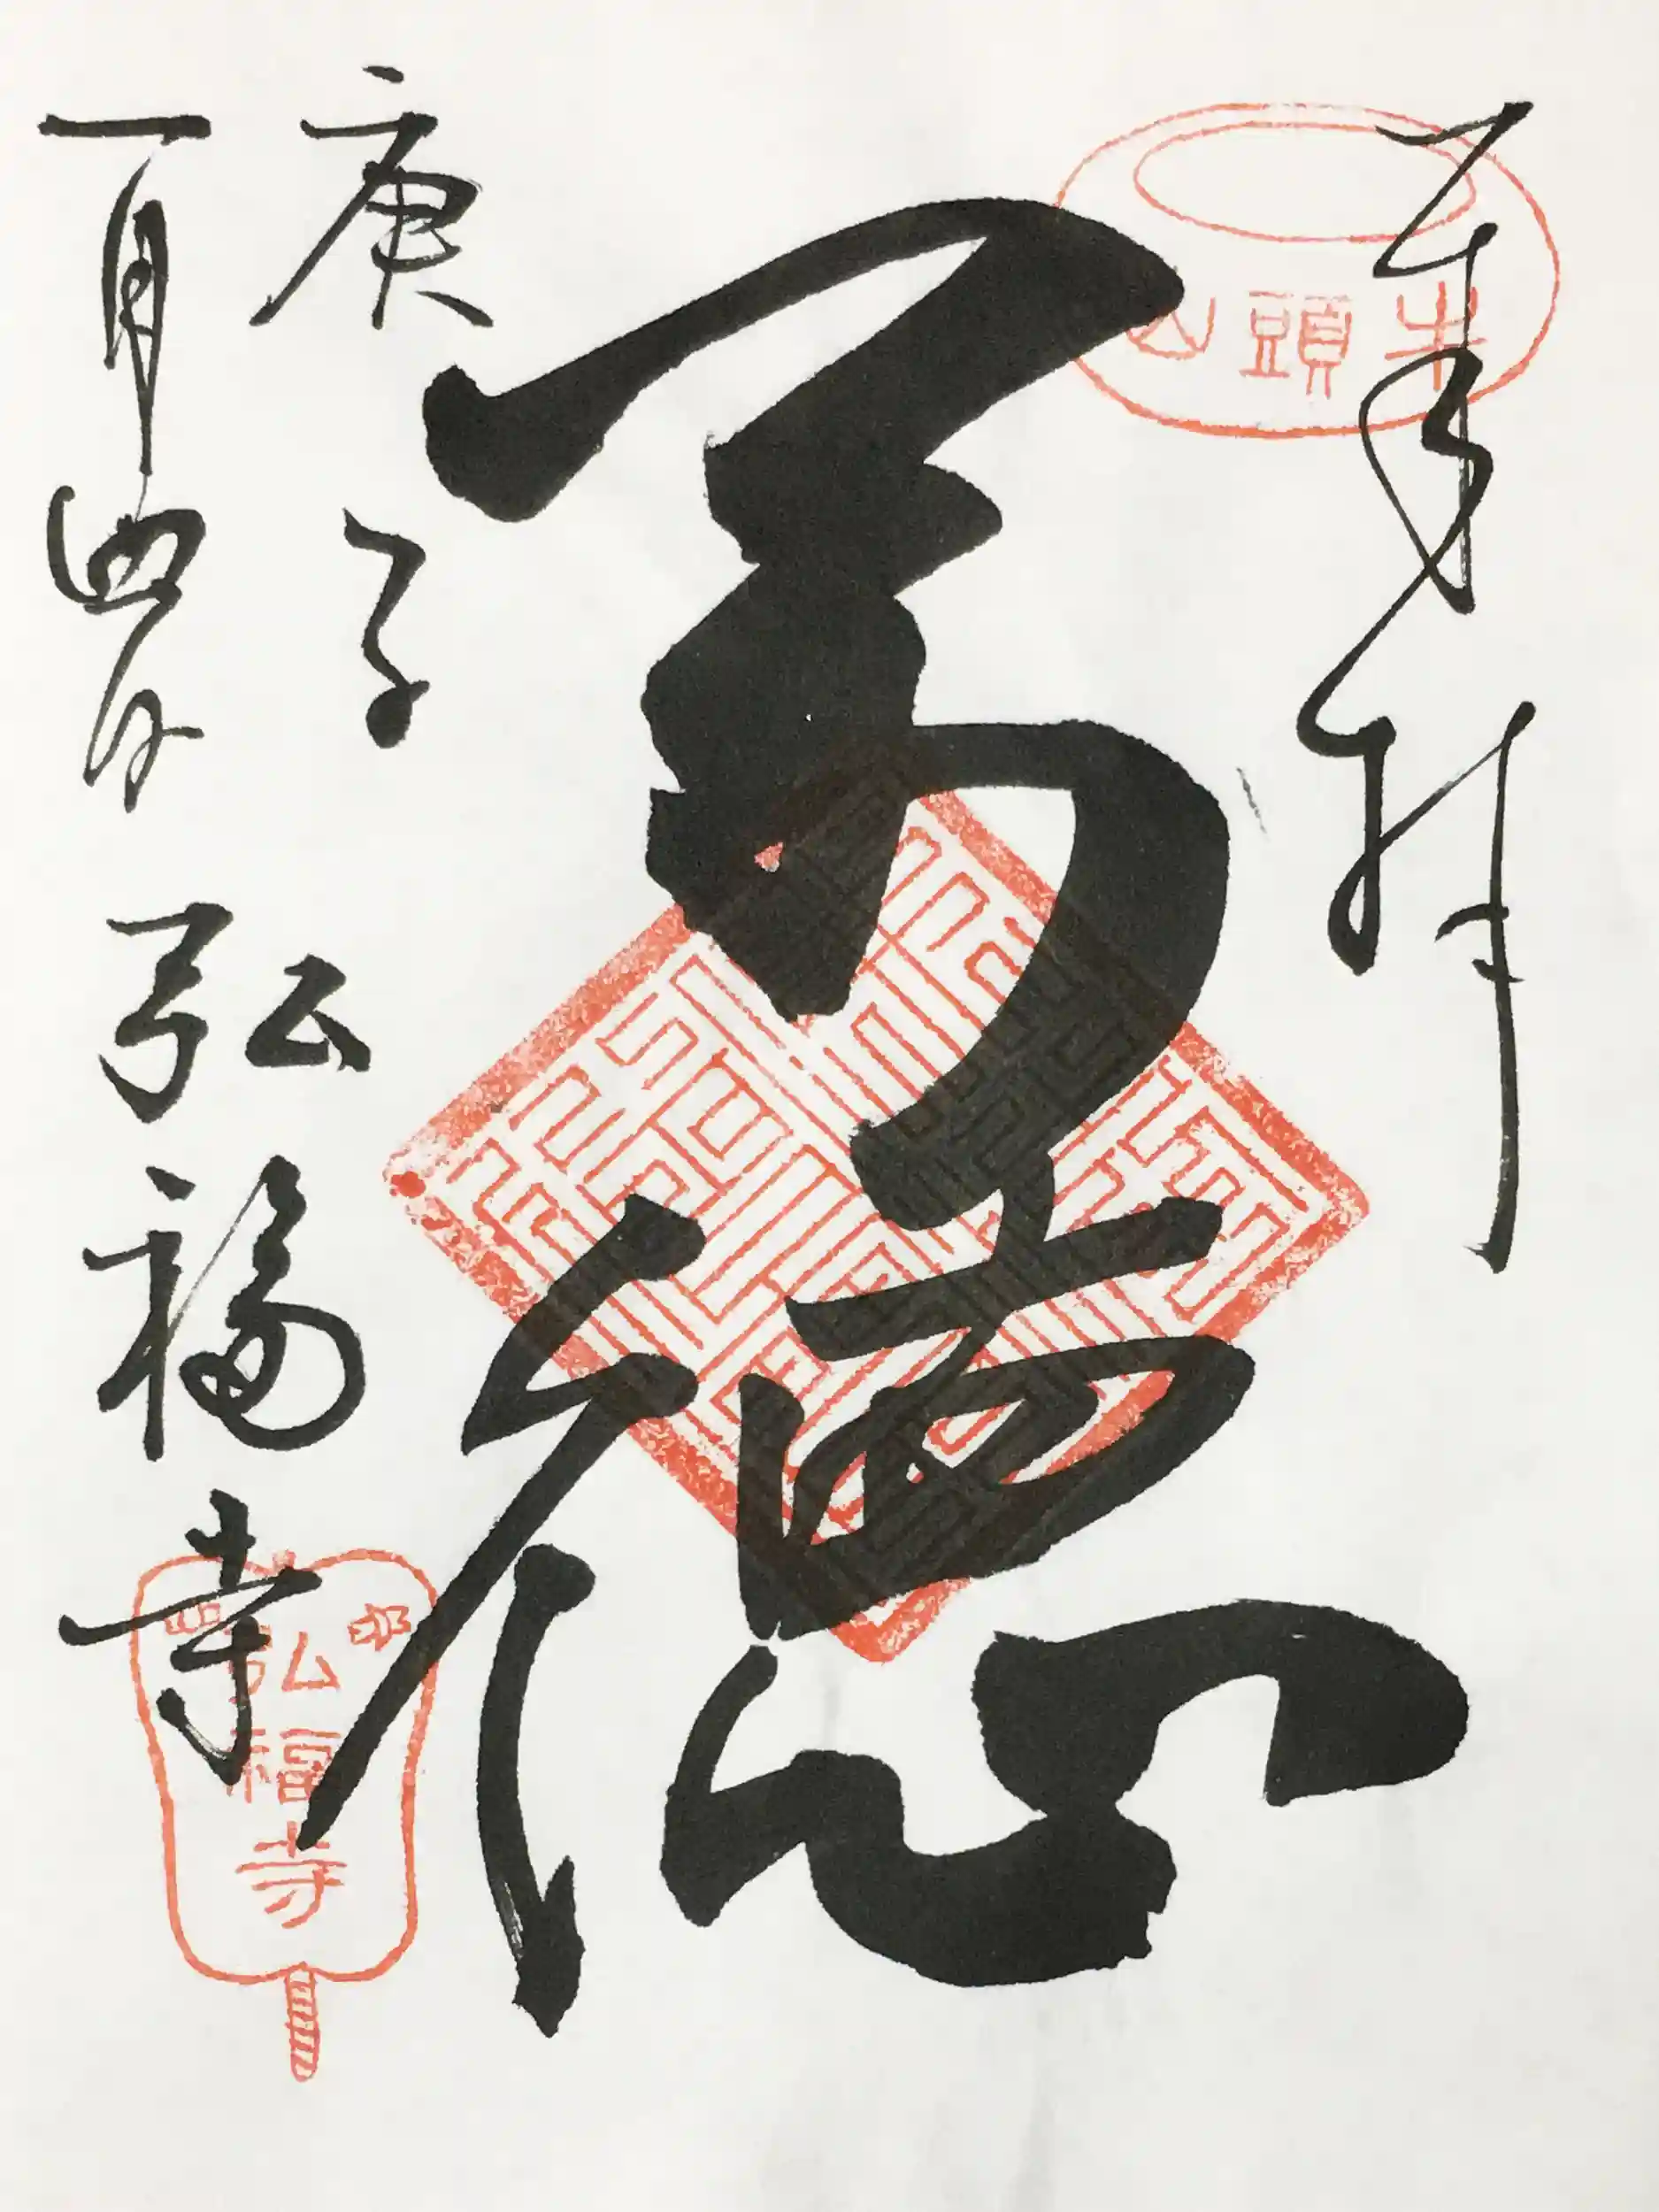 奉拝
牛頭山
徳
庚子
一月四日
弘福寺
弘福寺